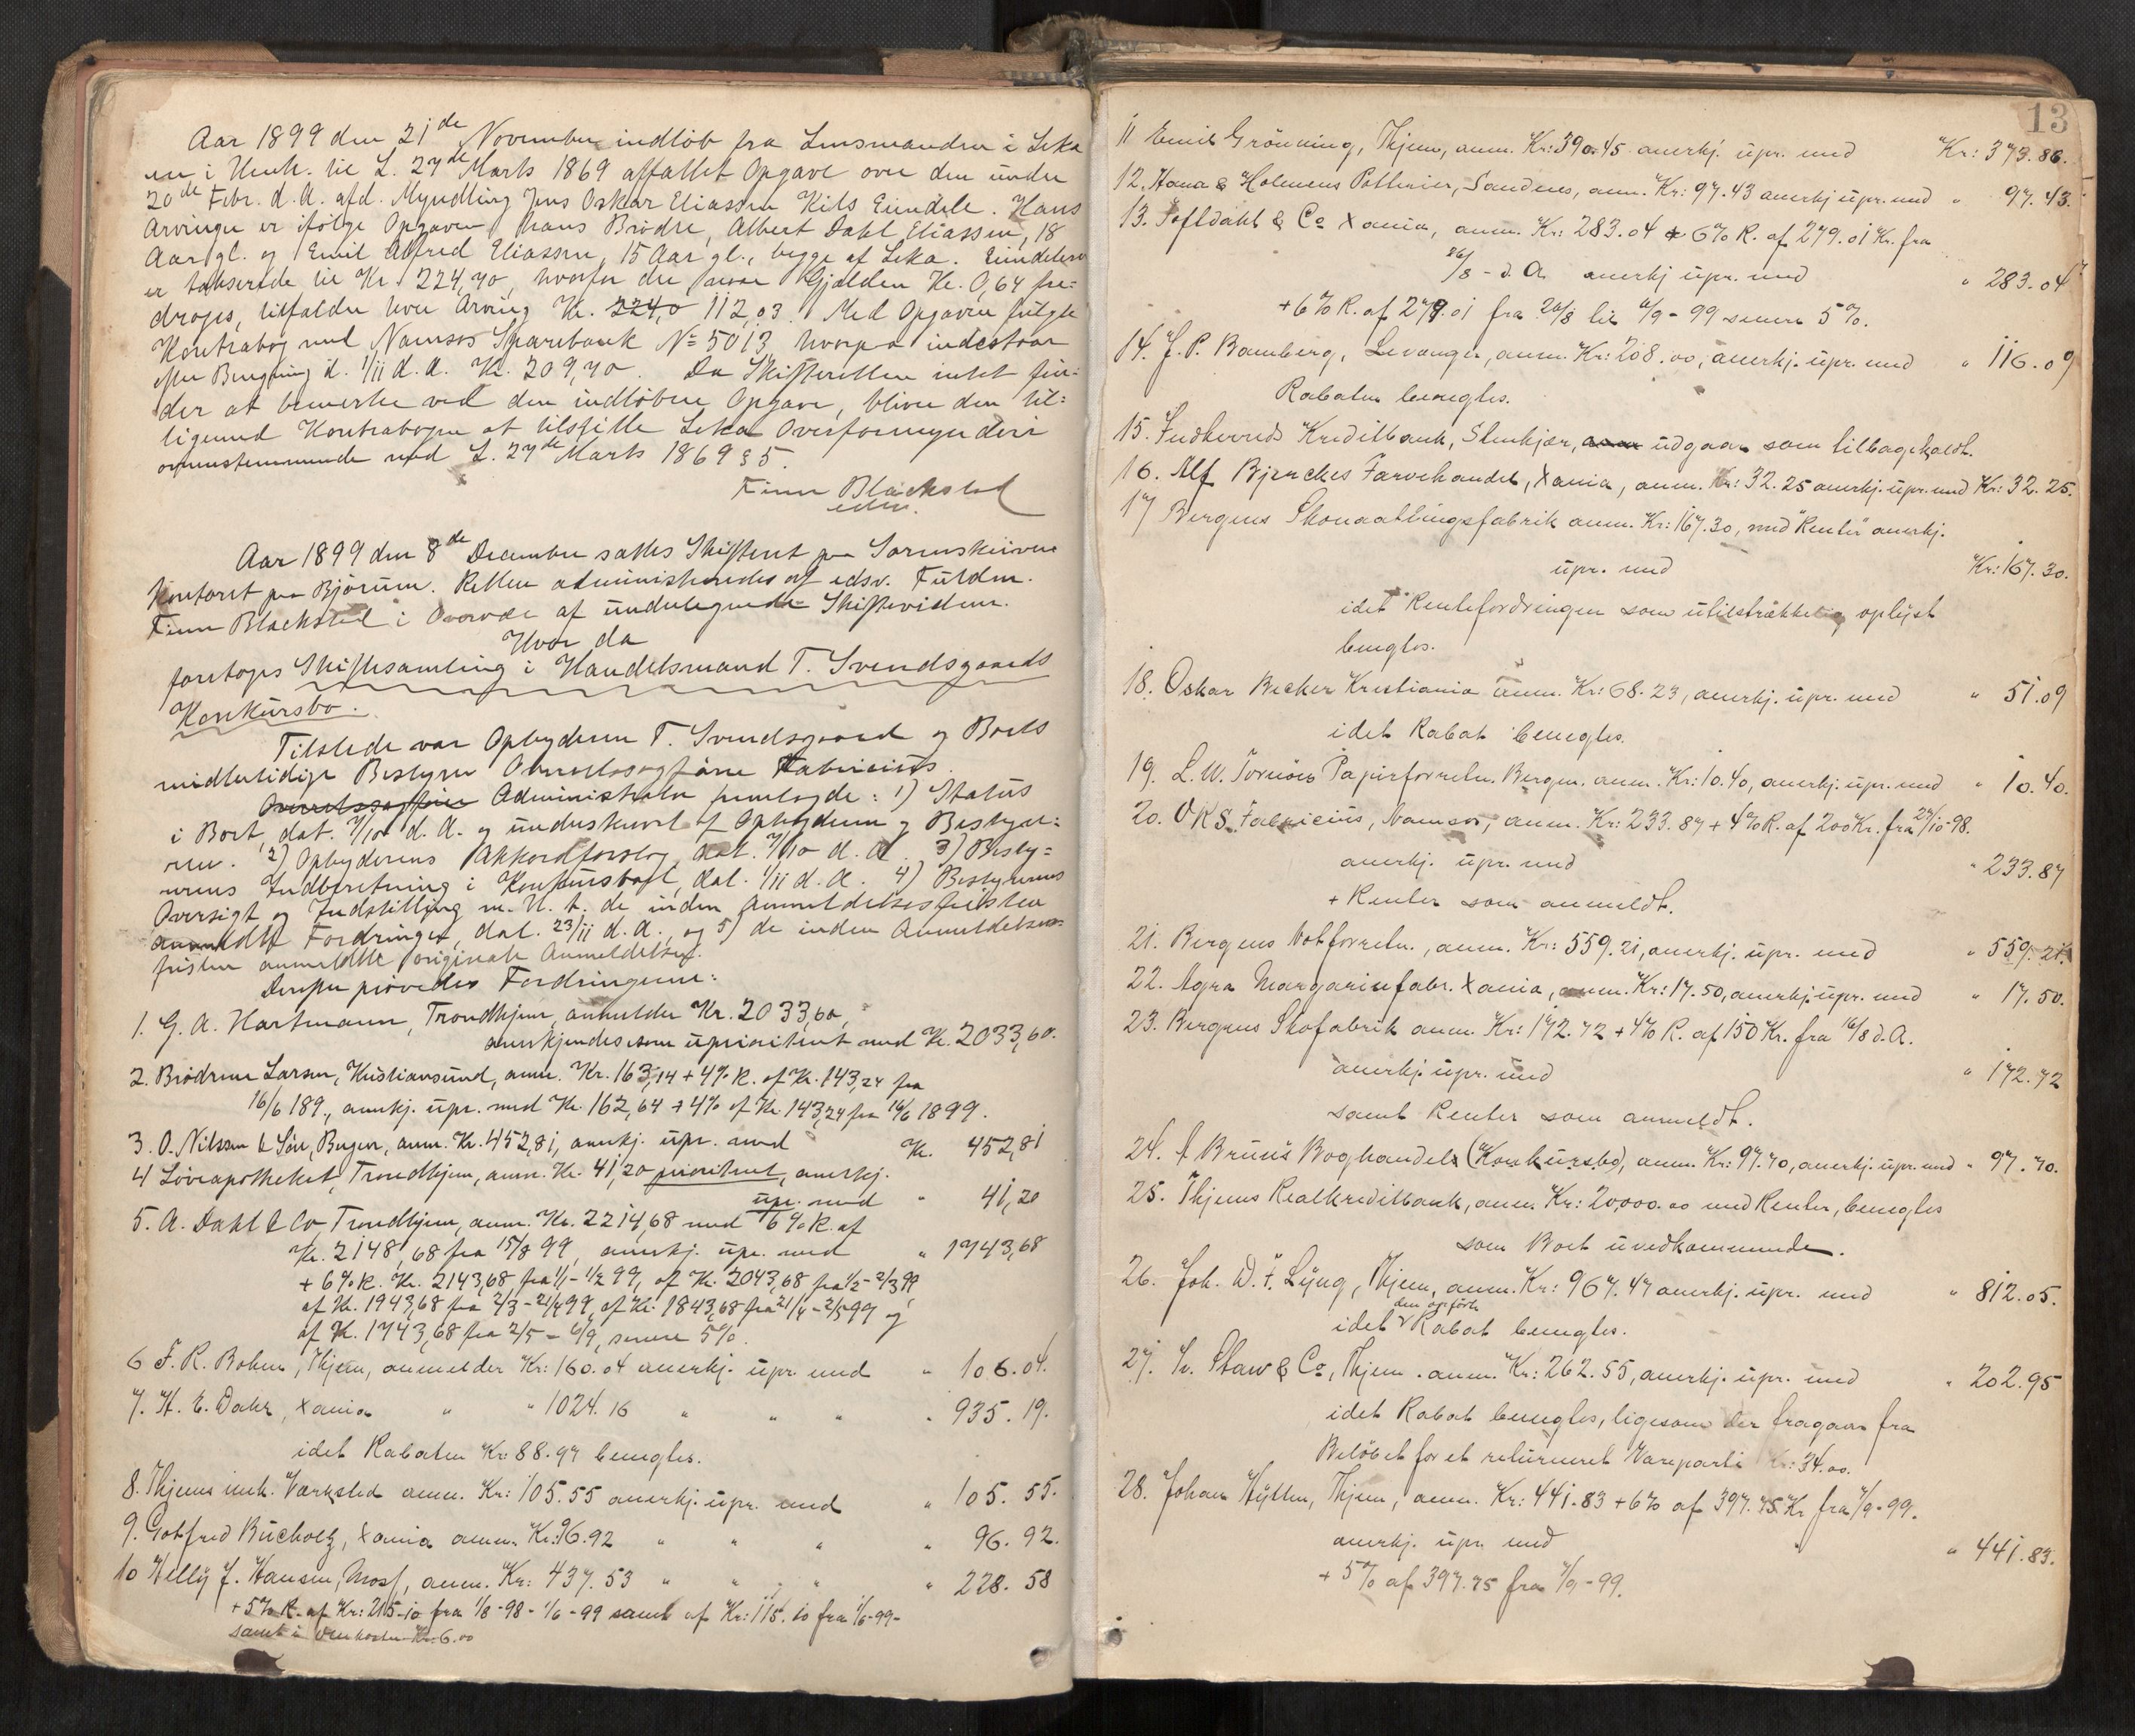 Aar 1899 den 21de November indløb fra Lensmanden i Leka
en i Henh. til L. 27de Marts 1869 affattet Opgave over den under
20de Febr. d. A. afd. Myndling Jens Oskar Eliassen Kils Eiendele. Hans
Arvinger er ifølge Opgaven hans Brødre, Albert Dahl Eliassen, 18
Aar gl. og Emil Alfred Eliassen, 15 Aar gl., begge af Leka. Eiendelene
er takserede til Kr. 224,70, hvorfor der, naar Gjælden Kr. 0,64 fra-
drages, tilfalder hver Arving Kr. 224,0 112,03. Med Opgaven fulgte
Kontrabog med Namsos Sparebank No 5013 hvorpaa indestaar
efter Beregning d. 1/11 d. A. Kr. 209,70. Da Skifteretten intet fin-
der at bemerke ved den indløbne Opgave, bliver den til-
ligemed Kontrabogen at tilstille Leka Overformynderi
overensstemmende med L. 27de Marts 1869 § 5.
Finn Blackstad
edsv.
Aar 1899 den 8de December sattes Skifteret paa Sorenskriver
kontoret paa Bjørum. Retten administreredes af edsv. Fuldm.
Finn Blackstad i Overvær af undertegnede Skiftevidner.
Hvor da
foretoges Skiftesamling i Handelsmand T. Svendsgaards
Konkursbo.
Tilstede var Opbyderen T. Svendsgaard og Boets
midlertidige Bestyrer Overretssagfører Fabricius.
Overretssagfører Administrator fremlagde: 1) Status
i Boet, dat. 7/10 d. A. og underskrevet af Opbyderen og Bestyre-
ren. 2) Opbyderens Akkordforslag, dat. 7/10 d. A. 3) Besty-
rerens Indberetning i Konkursboet, dat. 1/11 d. A. 4) Bestyrerens
Oversigt og Indstilling m. H. t. de inden Anmeldelsesfristen
anmeldte Fordringer, dat. 23/11 d. A., og 5) de inden Anmeldelses-
fristen anmeldte originale Anmeldelser.
Derefter prøvedes Fordringerne:
1. G. A. Hartmann, Trondhjem, anmelder Kr. 2033,60,
anerkjendes som uprioritert med Kr. 2033,60.
2. Brødrene Larsen, Kristiansund, anm. Kr. 163,14 + 4% R. af Kr. 143,24 fra
16/6 189., anerkj. upr. med Kr. 162,64 + 4% af Kr. 143,24 fra 16/6 1899.
3. O. Nilssen & Søn, Bergen, anm. Kr. 452,81, anerkj. upr. med Kr. 452,81
4 Løveapotheket, Trondhjem, anm. Kr. 41,20 prioritert, anerkj.
upr. med " 41,20
5. A. Dahl & Co Trondhjem, anm. Kr. 2214,68 med 6% R. af
Kr. 2148,68 fra 15/8 99, anerkj. upr. med " 1743,68
+ 6% R. Kr. 2143,68 fra 1/1 - 1/2 99, af Kr. 2043,68 fra 1/2 - 2/3 99,
af Kr. 1943,68 fra 2/3 - 21/4 99, af Kr. 1843,68 fra 21/4 - 2/5 99 og
af Kr. 1743,68 fra 2/5 - 6/9, senere 5%.
6 F. R. Bohm, Thjem, anmelder Kr: 160.04 anerkj. upr. med " 106.04.
7. H. E. Dahr, Xania " " 1024.16 " " " " 935.19.
idet Rabaten Kr: 88.97 benegtes.
8. Thjems mek. Værksted anm. Kr: 105.55 anerkj. upr. med " 105.55.
9. Gotfred Bucholz, Xania anm. Kr: 96.92 " " " " 96.92.
10 Helly J. Hansen, Moss, anm. Kr: 437.53 " " " " 228.58
+ 5% R. af Kr: 215.10 fra 1/8-98 - 1/6-99 samt af Kr: 115.10 fra 1/6-99-
samt i Omkostn. Kr: 6.00
13
11 Emil Grönning, Thjem, anm. Kr: 390.45 anerkj. upr. med Kr: 373.86.
12. Hana & Holmens Potterier, Sandnes, anm. Kr: 97.43 anerkj upr. med " 97.43.
13. Toftdahl & Co Xania, anm. Kr: 283.04 + 6% R. af 279.01 Kr. fra
26/8 - d. A. anerkj upr. med " 283.04
+ 6% R. af 279.01 fra 26/8 til 6/9-99 senere 5%.
14. J. P. Bamberg, Levanger, anm. Kr: 208.00, anerkj. upr. med " 116.09
Rabaten benegtes.
15. Indherreds Kreditbank, Stenkjær, anm udgaar som tilbagekaldt.
16. Alf Bjerckes Farvehandel, Xania, anm. Kr: 32.25 anerkj. upr. med Kr: 32.25.
17 Bergens Skonaatlingsfabrik anm. Kr: 167.30, med "Renter" anerkj.
upr. med Kr: 167.30.
idet Rentefordringen som utilstrækkelig oplyst
benegtes.
18. Oskar Becker Kristiania anm. Kr: 68.23, anerkj. upr. med " 51.09
idet Rabat benegtes.
19. L. W. Tornöes Papirforretn. Bergen. anm. Kr: 10.40, anerkj. upr. med " 10.40.
20. ORS. Fabricius, Namsos, anm. Kr: 233.87 + 4% R. af 200 Kr. fra 24/10-98.
anerkj. upr. med " 233.87
+ Renter som anmeldt.
21. Bergens Notforretn., anm. Kr: 559.21, anerkj. upr. med " 559.21.
22. Agra Margarinfabr. Xania, anm. Kr: 17.50, anerkj. upr. med " 17.50.
23. Bergens Skofabrik anm. Kr: 172.72 + 4% R. af 150 Kr. fra 16/8 d. A.
anerkj. upr. med " 172.72
samt Renter som anmeldt.
24. Bruns Boghandels (Konkursbo), anm. Kr: 97.70, anerkj. upr. med " 97.70.
25. Thjems Realkreditbank, anm. Kr: 20,000.00 med Renter, benegtes
som Boet uvedkommende.
26. Joh. D. F. Lyng, Thjem, anm. Kr: 967.47 anerkj. upr. med " 812.05.
idet den opførte Rabat benegtes.
27. Staw & Co, Thjem. anm. Kr: 262.55, anerkj. upr. med " 202.95
idet Rabat benegtes, ligesom der fragaar fra
Belöbet for et returneret Vareparti Kr: 34.00.
28. Johan Hytten, Thjem, anm. Kr: 441.83 + 6% af 397.75 Kr fra 7/9-99.
anerkj. upr. med " 441.83.
+ 5% af 397.75 fra 7/9-99.